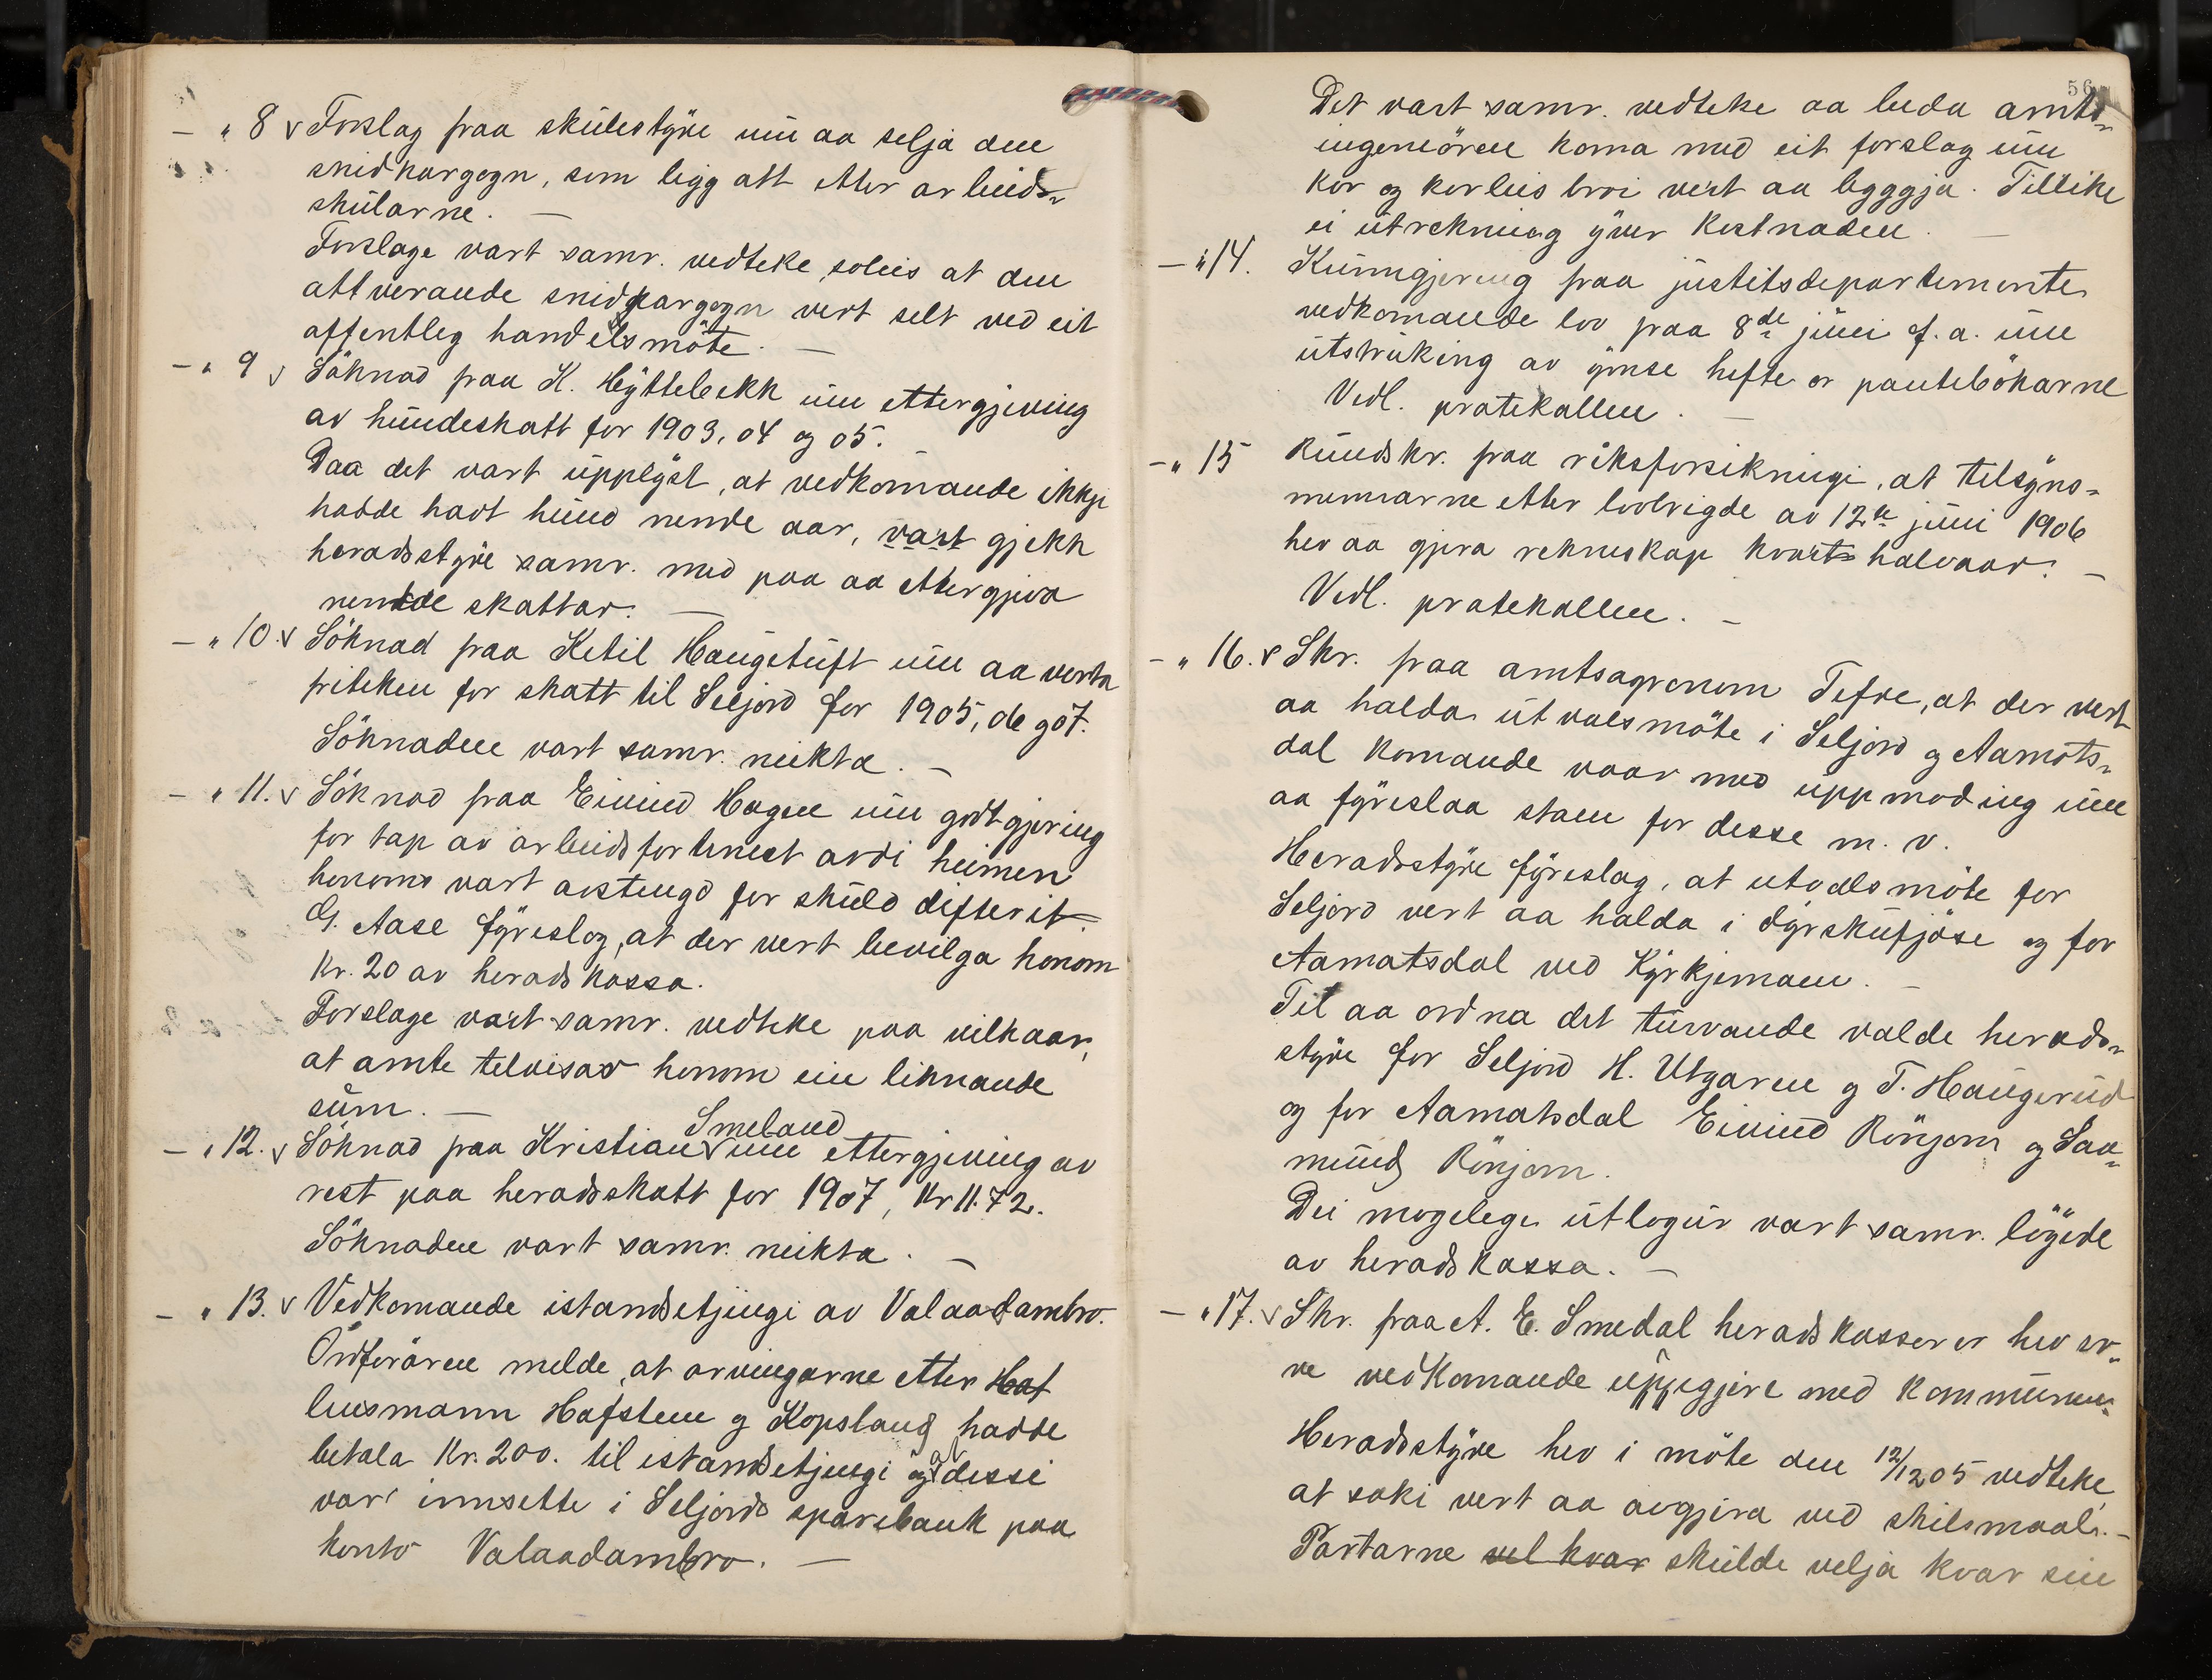 — " 8 v Forslag fraa skulestyre um aa selja den
snidkargogn, som ligg att etter arbeids-
skularne. —
Forslage vart samr. vedteke soleis at den
attverande snidkargogn vert selt ved eit
offentleg handelsmöte. —
— " 9 v Söknad fraa K. Hyttebekk um ettergjeving
av hundeskatt for 1903, 04 og 05.
Daa det vart upplyst, at vedkomande ikkje
hadde havt hund nemde aar, vart gjekk
heradsstyre samr. med paa aa ettergjeva
nemde skattar. —
— " 10. v Söknad fraa Ketil Haugetuft um aa verta
friteken for skatt til Seljord for 1905, 06 og 07.
Söknaden vart samr. neikta. —
— " 11. v Söknad fraa Eivind Hagen um godtgjering
for tap av arbeidsfortenest avdi heimen
honoms vart avstengd for skuld difterit.
G. Aase fyreslog, at der vert bevilga honom
Kr. 20 av heradskassa.
Forslage vart samr. vedteke paa vilkaar,
at amte telvisar honom ein liknande
sum. —
Smeland
— " 12. v Söknad fraa Kristian v um ettergjeving av
rest paa heradsskatt for 1907, Kr 11.72.
Söknaden vart samr. neikta. —
— " 13. v Vedkomande istandsetjingi av Valaadambro.
Ordföraren melde, at arvingarne etter Haf
lensmann Hafsten og Kopsland hadde
betala Kr. 200. til istandsetjingi og at dessi
var innsette i Seljords sparebank paa
konto Valaadambro. —
56
Det vart samr. vedteke aa beda amts-
ingeniören koma med eit forslag um
kor og korleis broi vert aa leggja. Tillike
ei utrekning yver kostnaden. —
— " 14. Kunngjering fraa justitsdepartemente
vedkomande lov fraa 8de juni f. a. um
utstruking av ymse hefte or pantebökarne
Vedl. protokollen. —
— " 15 Rundskr. fraa riksforsikringi, at tilsyns-
mennarne etter lovbrigde av 12te juni 1906
hev aa gjera rekneskap kvart halvaar. —
Vedl. protokollen. —
— " 16. v Skr. fraa amtsagronom Tefre, at der vert
aa halda utvalsmöte i Seljord og Aamots-
dal komande vaar med uppmoding um
aa fyreslaa stam for desse m. v.
Heradsstyre fyreslog, at utvalsmöte for
Seljord vert aa halda i dyrskufjöse og for
Aamotsdal ved Kyrkjemoen. —
Til aa ordna det turvande valde herads-
styre for Seljord H. Utgaren og T. Haugerud
og for Aamotsdal Eivind Rönjom og Saa-
mund Rönjom.
Dei mogelege utlogur vart samr. löyvde
av heradskassa. —
— " 17. v Skr. fraa A. E. Smedal heradskasserer hev er-
ve vedkomande uppgjere med kommunen.
Heradsstyre hev i möte den 12/12 05 vedteke,
at saki vert aa avgjera ved skilsmaal. —
Partarne vel kvar skulde velja kvar sin